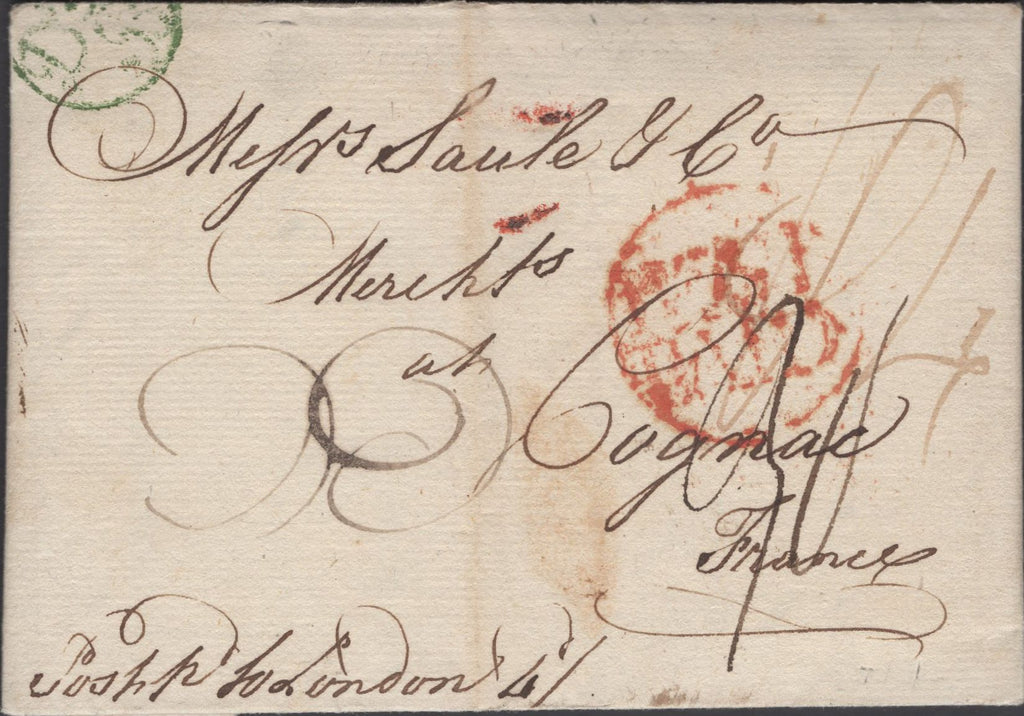 Messrs Saule & Co
Merchts
at Cognac
France
Post pd to London 4d/